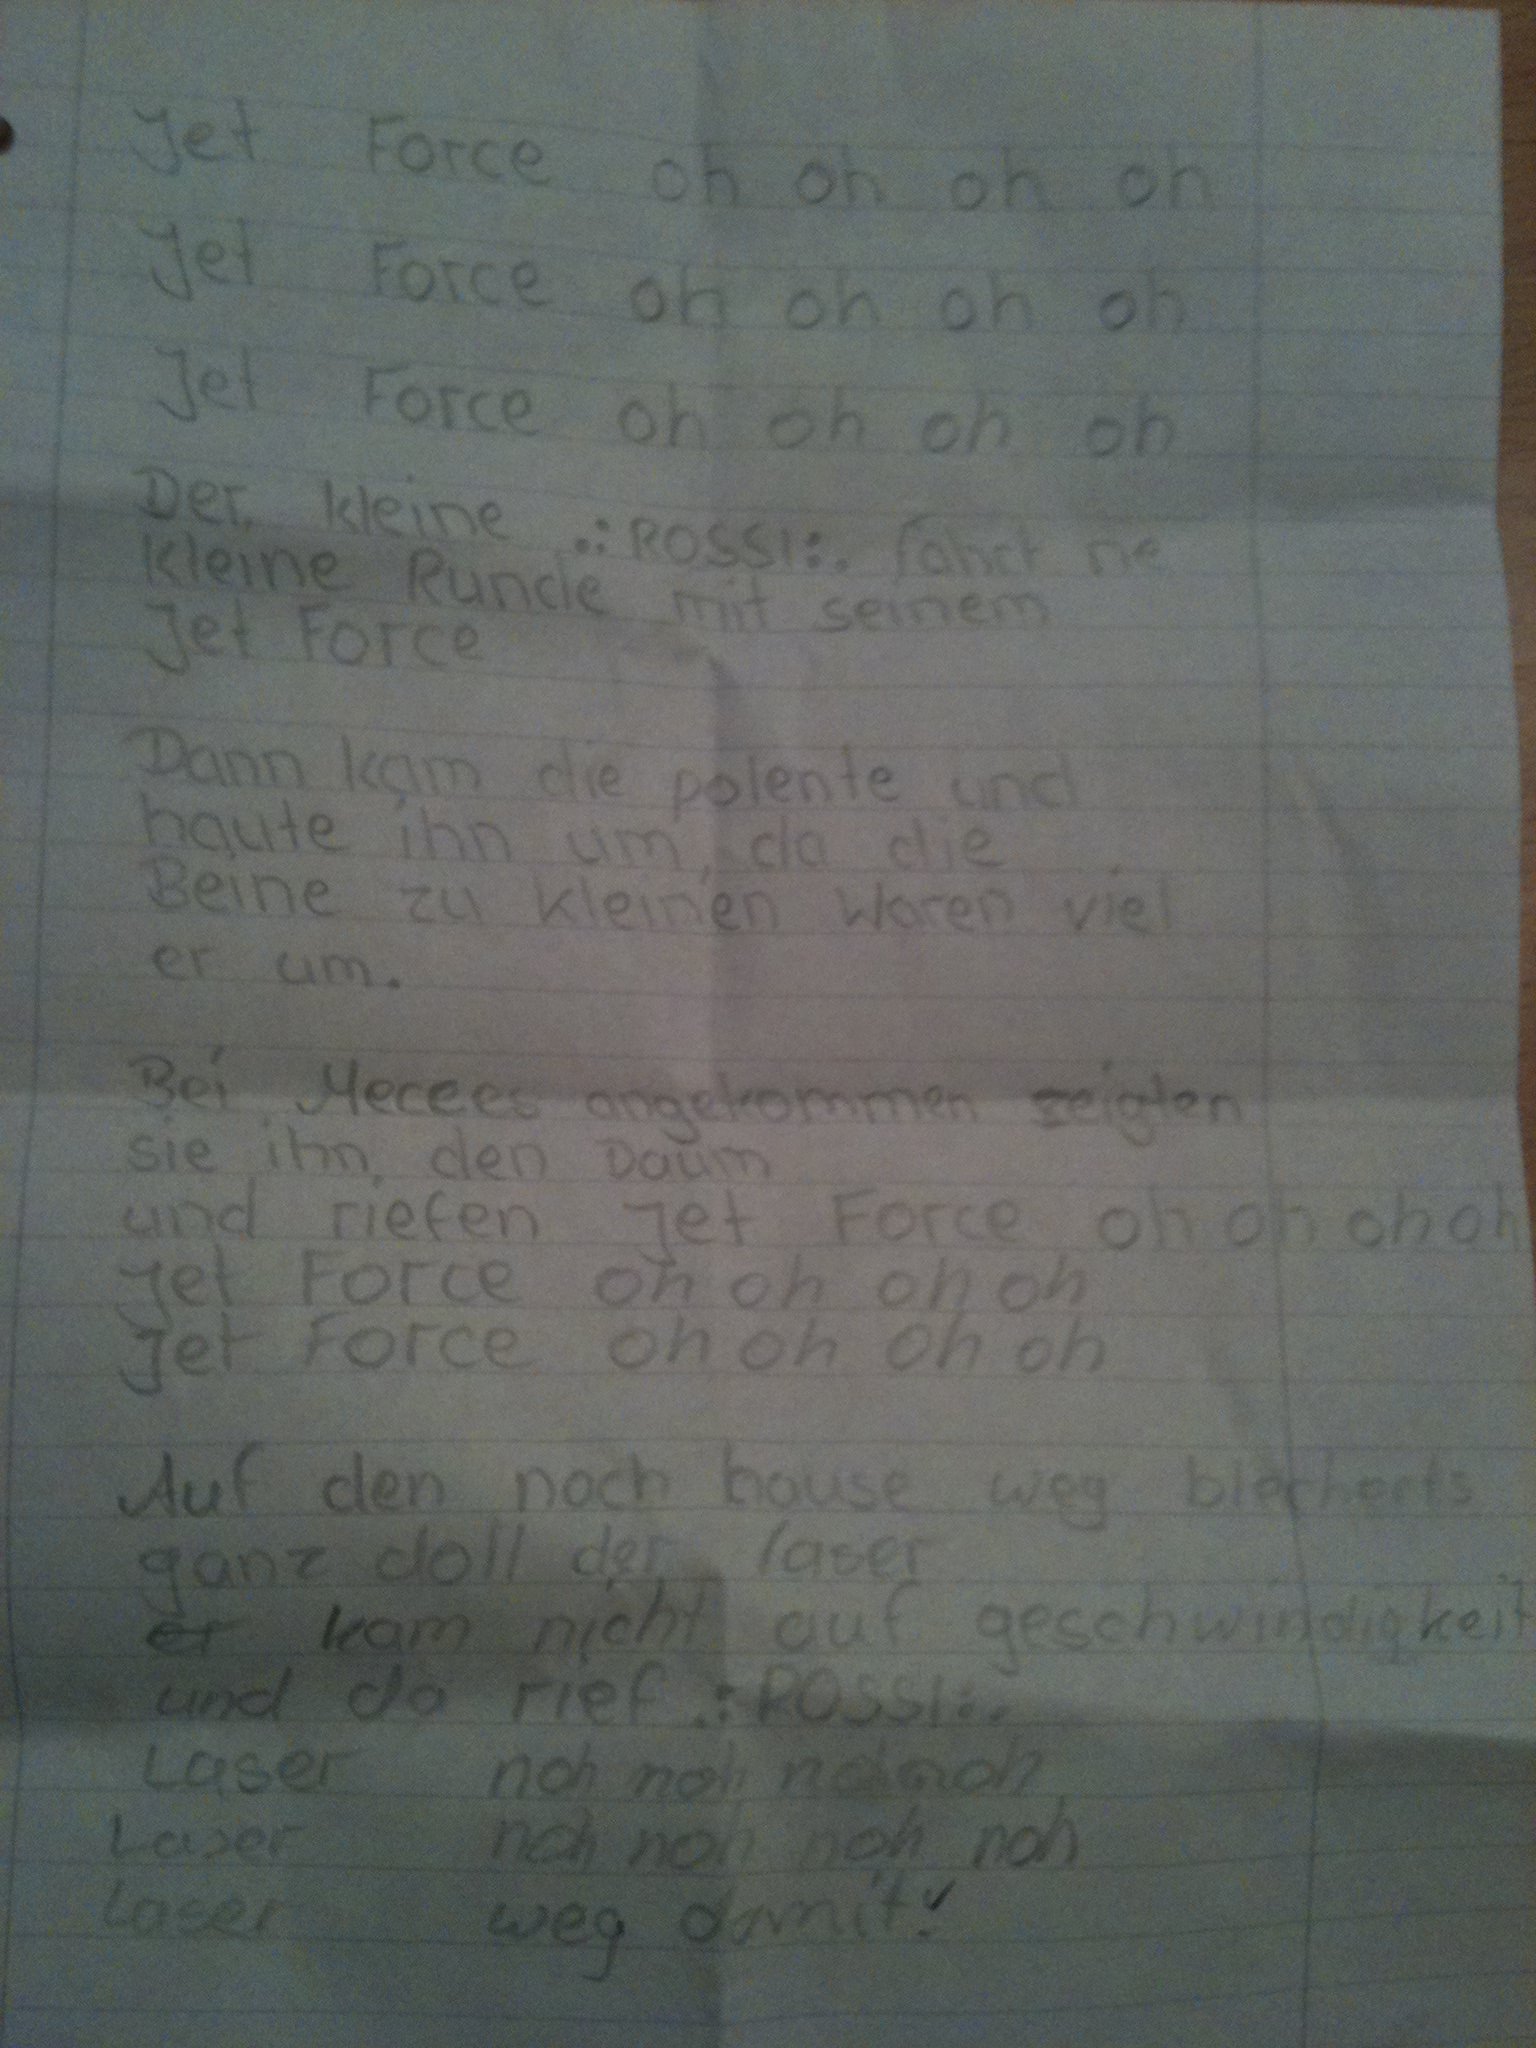 Jet Force oh oh oh oh
Jet Force oh oh oh oh
Jet Force oh oh oh oh
Der kleine .:ROSSI:. fährt ne
kleine Runde mit seinem
Jet Force
Dann kam die polente und
haute ihn um, da die
Beine zu kleinen waren viel
er um.
Bei Mecees angekommen zeigten
sie ihn den Daum
und riefen Jet Force oh oh oh oh
Jet Force oh oh oh oh
Jet Force oh oh oh oh
Auf den nach hause weg
ganz doll der laser
er kam nicht auf geschwindigkeit
und da rief .:ROSSI:.
Laser nah nah nah nah
Laser nah nah nah nah
Laser weg damit!